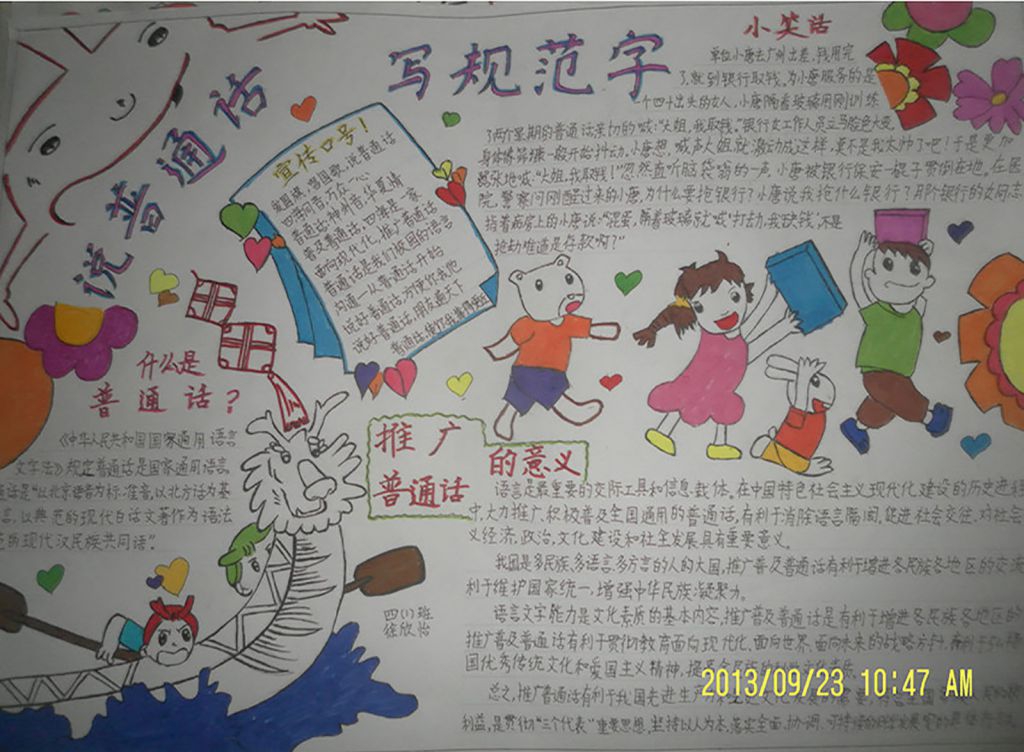 说普通话
写规范字
小笑话
单位小唐去广州出差,钱用完
了,就到银行取钱,为小唐服务的是
一个四十出头的女人,小唐隔着玻璃用刚训练
了两个星期的普通话亲切的喊:“大姐,我取钱。”银行女工作人员立马脸色大变,
身体
一般开始抖动。小唐想,喊声大姐就激动成这样,莫不是我太帅了吧!于是更加
地喊:“大姐,我取钱!”忽然直听脑袋嗡的一声,小唐被银行保安一棍子贯倒在地。在医
院,警察问刚醒过来的小唐,为什么要抢银行?小唐说我抢什么银行?
银行的女同志
指着病房上的小唐说:“混蛋,隔着玻璃就喊‘打劫,我
钱’,不是
抢劫难道是存款啊?”
宣传口号!
爱国旗,唱国歌,说普通话
四海同音,万众一心
普通话,神州音,华夏情
普及普通话,四海是一家
面向现代化,推广普通话
普通话是我们校园的语言
沟通—从普通话开始
说好普通话,方便你我他
说好普通话,朋友遍天下
普通话,
什么是
普通话?
《中华人民共和国国家通用语言
文字法》规定普通话是国家通用语言。
通话是“以北京语音为标准音,以北方话为基
言,以典范的现代白话文著作为语法
范的现代汉民族共同语”。
推广
普通话
的意义
语言是最重要的交际工具和信息载体。在中国特色社会主义现代化建设的历史进程
中,大力推广、积极普及全国通用的普通话,有利于消除语言隔阂,促进社会交往,对社会
义经济、政治、文化建设和社会发展具有重要意义。
我国是多民族、多语言、多方言的人口大国,推广普及普通话有利于增进各民族各地区的交流
利于维护国家统一,增强中华民族凝聚力。
语言文字能力是文化素质的基本内容,推广普及普通话是有利于增进各民族各地区的
推广普及普通话有利于贯彻教育面向现代化、面向世界、面向未来的战略方针,有利于
国优秀传统文化和爱国主义精神,提高全民族的
总之,推广普通话有利于我国先进生产
利益,是贯彻“三个代表”重要思想,坚持以人为本,落实全面、协调、可持续的
四(1)班
徐欣怡
2013/09/23 10:47 AM